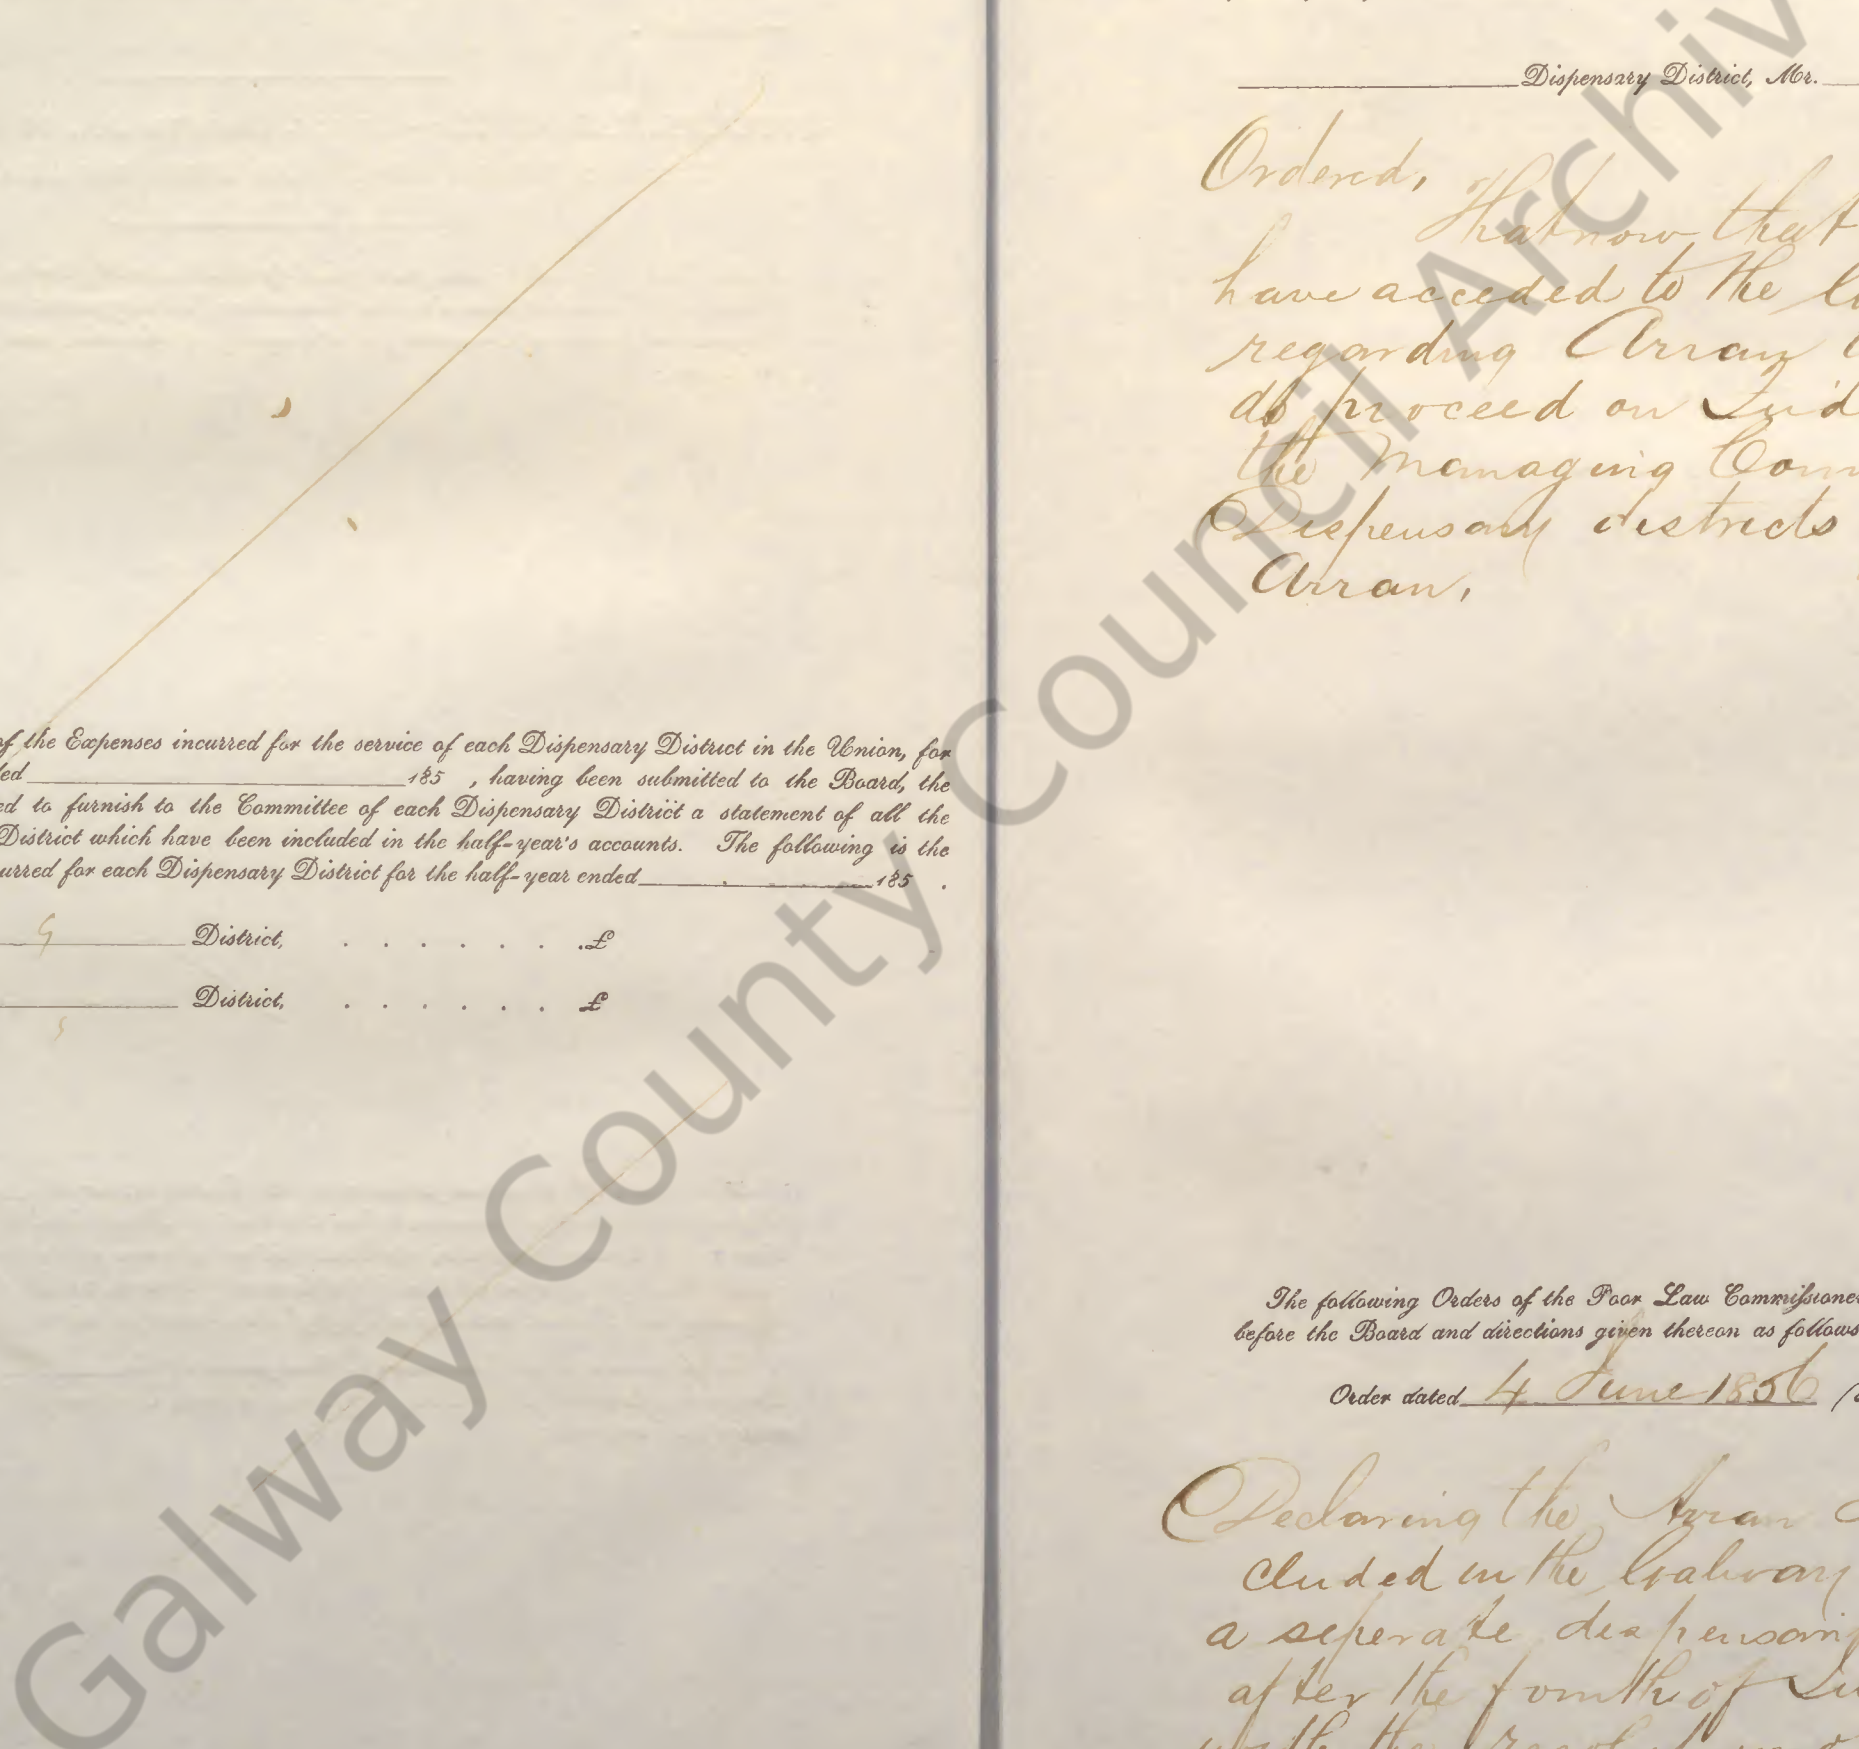 of the Expenses incurred for the service of each Dispensary District in the Union, for
185 , having been submitted to the Board, the
to furnish to the Committee of each Dispensary District a statement of all the
District which have been included in the half-year's accounts. The following is the
for each Dispensary District for the half-year ended 185 .
District, . . . . . . .£
District, . . . . . . £
Dispensary District, Mr.
Ordered,
That now that
have acceded to the
regarding Arran
do proceed on
the Managing
Dispensary districts
Arran.
The following Orders of the Poor Law
before the Board and directions given thereon as follows
Order dated 4 June 1856
Declaring the Arran
cluded in the Galway
a seperate
after the fourth of
Galway County Council